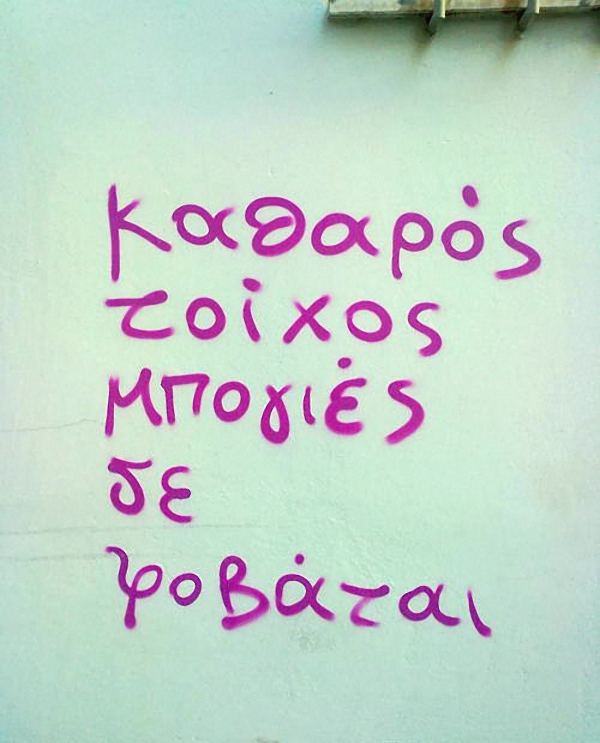 καθαρός
τοίχος
μπογιές
δε
φοβάται